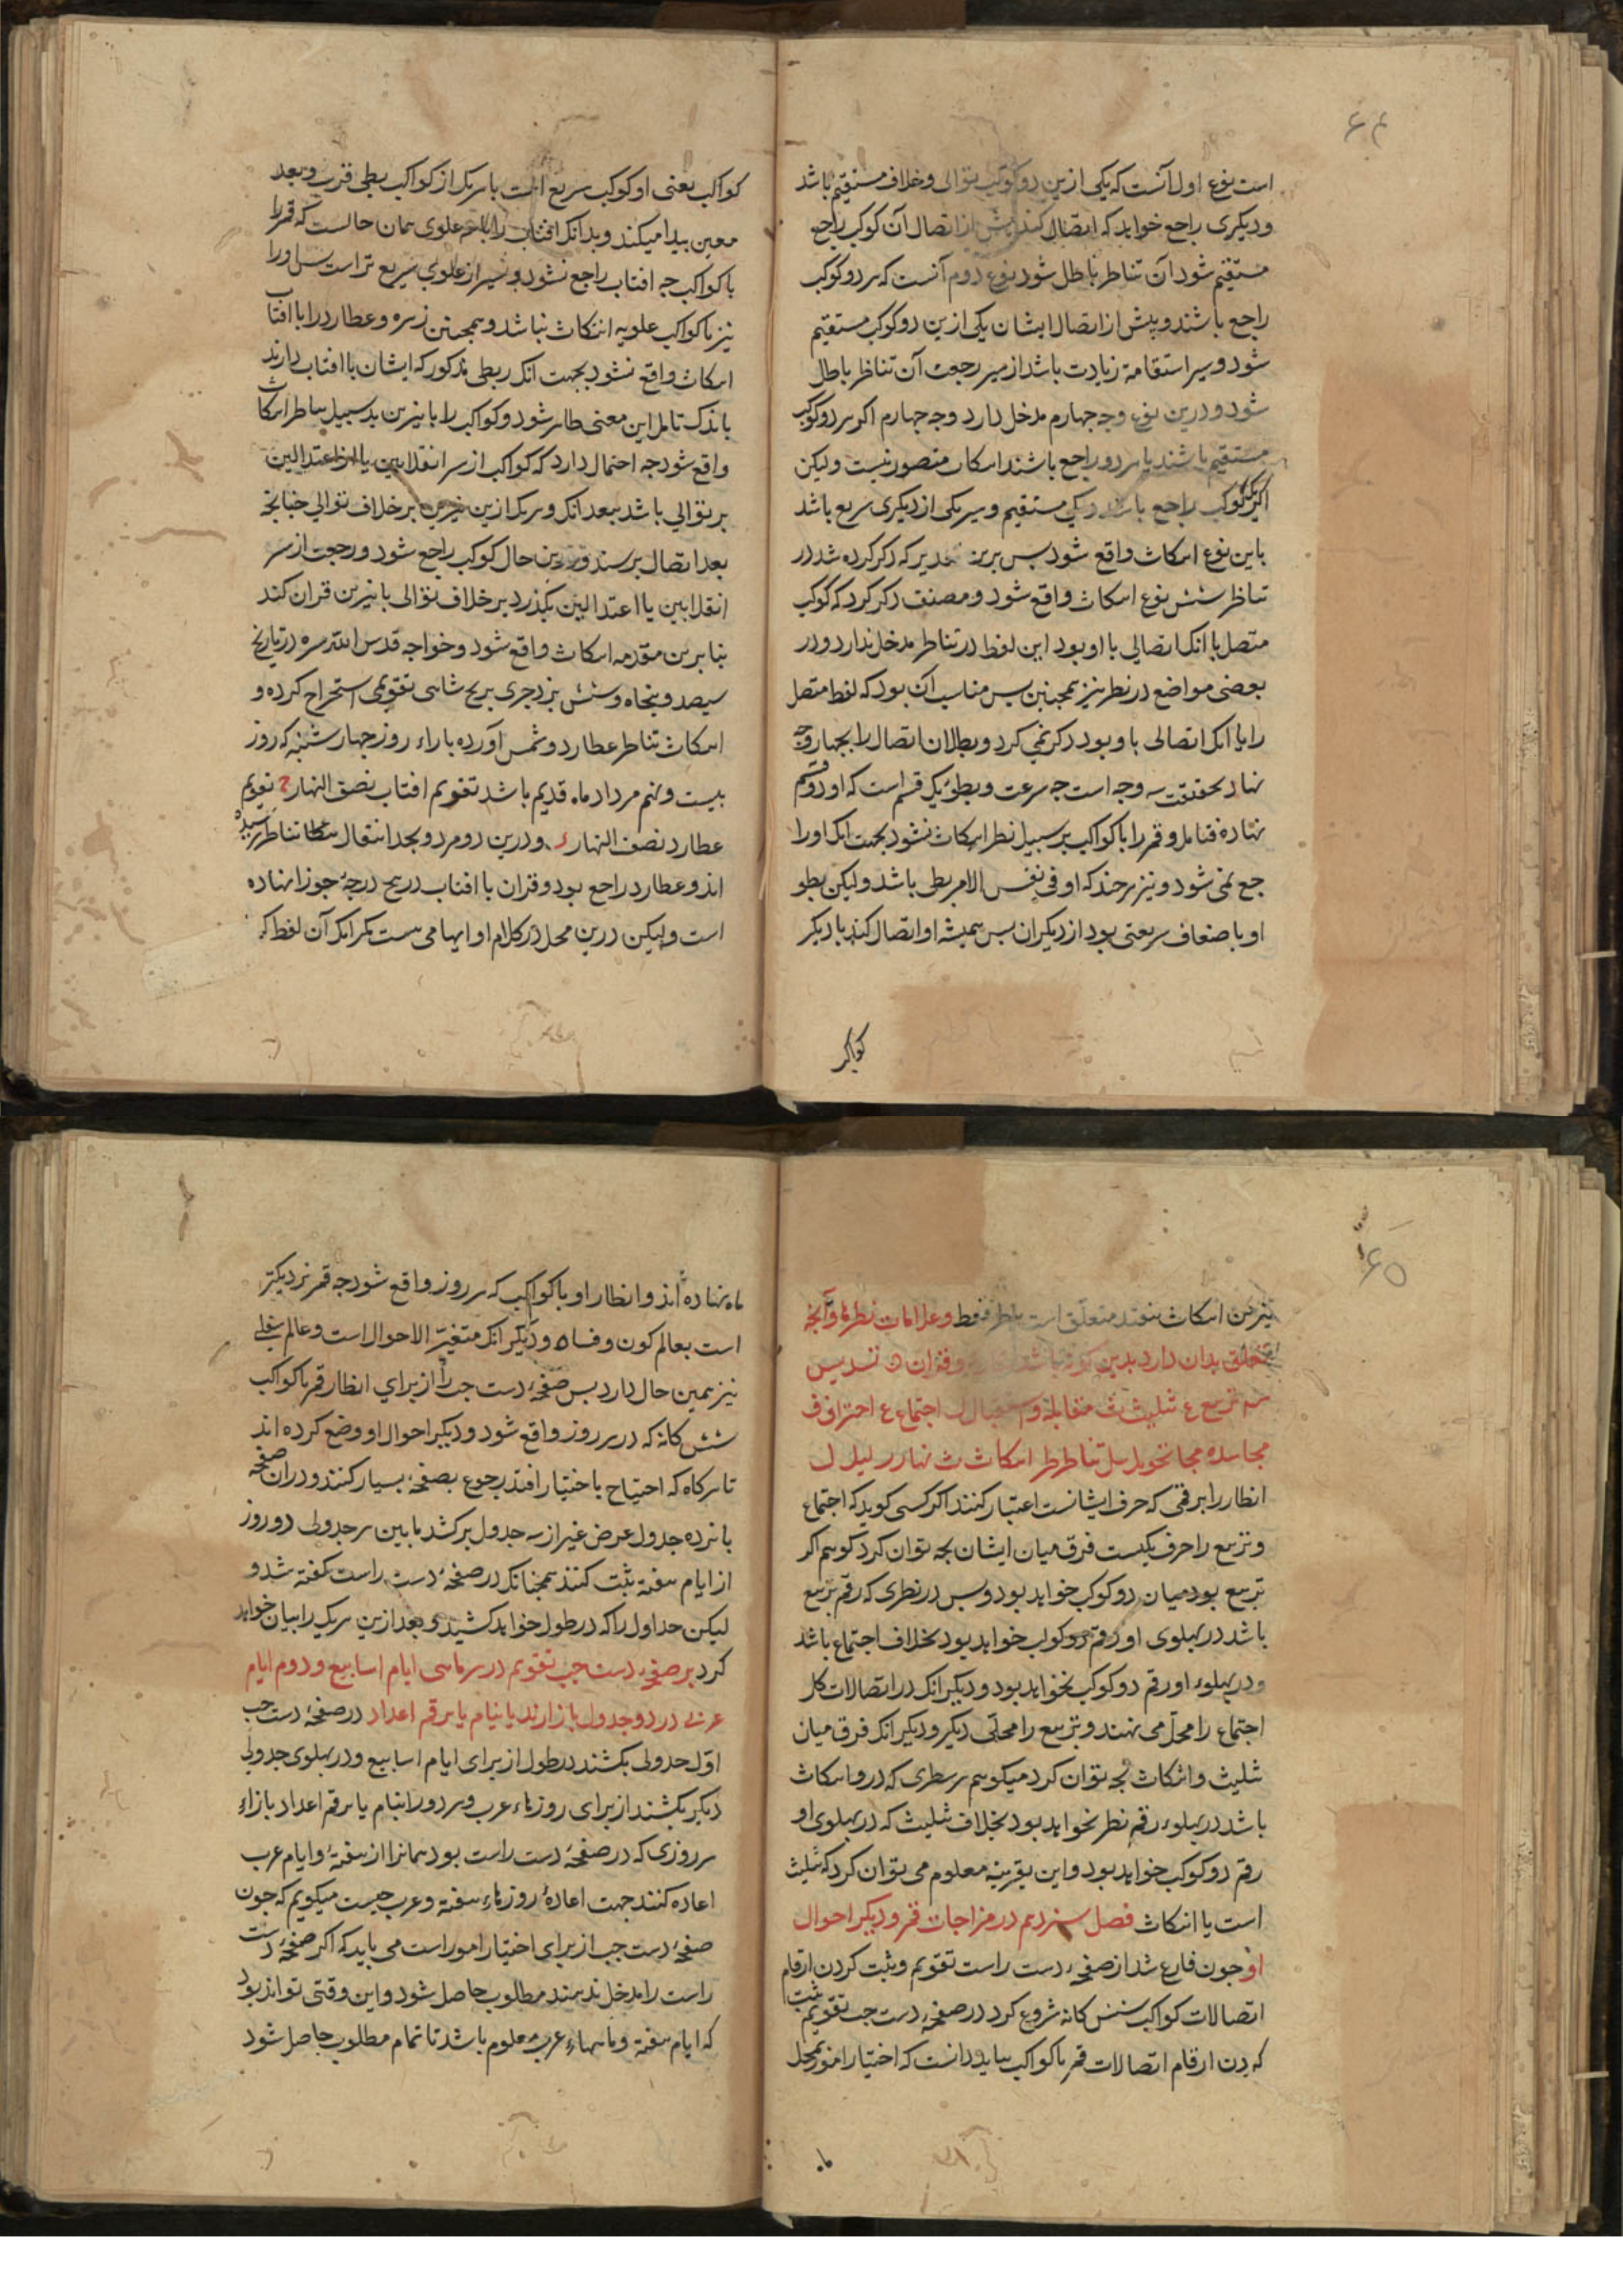 ۶۴
است نوع اول آنست که یکی ازین دو کوکب بتوالی و خلاف مستقیم باشد
و دیکری راجع خواهد که اتصال کند پیش از اتصال آن کوکب راجع
مستقیم شود آن تناظر باطل شود نوع دوم آنست که هر دو کوکب
راجع باشند و پیش از اتصال ایشان یکی ازین دو کوکب مستقیم
شود و سیر استقامة زیادت باشد از سیر رجعت آن تناظر باطل
شود و درین نوع وجه چهارم مدخل دارد وجه جهارم اکر هر دو کوکب
مستقیم باشند یا هر دو راجع باشند اسکاث متصور نیست ولیکن
اکر یک کوکب راجع باشد و یکی مستقیم و سیر یکی از دیکری سریع باشد
باین نوع اسکاث واقع شود بس برین تقدیر که ذکر کرده شد در
تناظر شش نوع اسکاث واقع شود و مصنف ذکر کرد که کوکب
متصل با انک اتصالی با او بود این لفظ در تناظر مدخل ندارد و در
بعضی مواضع در نظر نیز همجنین بس مناسب آن بود که لفظ متصل
را با انک اتصالی با و بود ذکر نمی کرد و بطلان اتصال را بجهار وجه
نهاد بحقیقت سه وجه است جه سرعت و بطؤ یک قسم است که او دو قسم
نهاده فتامل و قمر را با کواکب بر سبیل نظر اسکاث نشود بجهت انک او را
جع نمی شود و نیز هرجند که او فی نفس الامر بطی باشد ولیکن بطو
او باضعاف سریعتی بود از دیکران بس همیشه او اتصال کند با دیکر
کواکب
کواکب یعنی او کوکب سریع است با هر یک از کواکب بطی قرب و بعد
معین پیدا میکند و بدانک افتاب را با علوی همان حالست که قمر را
با کواکب جه افتاب راجع نشود و سیر از علوی سریع تر است بس او را
نیز با کواکب علویه انتکاث نباشد و همجنین زهره و عطارد را با افتاب
اسکاث واقع نشود بجهت انک ربطی مذکور که ایشان با افتاب دارند
باندک تامل این معنی ظاهر شود و کواکب را با نیرین بد سبیل تناظر اسکاث
واقع شود جه احتمال دارد که کواکب از سر انقلابین یا از اعتدالین
بر توالی باشد ببعد انک و هر یک ازین نیرین بر خلاف توالی جنانجه
بعد اتصال برسند و درین حال کوکب راجع شود و رجعت از سر
انقلابین یا اعتدالین بکذرد بر خلاف توالی با نیرین قران کند
بنابرین مقدمه اسکاث واقع شود و خواجه قدس الله سره در تاریخ
سیصد و بنجاه و شش یزدجردی بزیج شاهی تقویمی استخراج کرده و
اسکاث تناظر عطارد و شمس آورده بازاء روز جهار شنبه که روز
بیست و نهم مرداد ماه قدیم باشد تقویم افتاب نصف النهار تقویم
عطارد نصف النهار و درین دو مرد و بجد انتقال تناظر رسیده
اند و عطارد راجع بود و قران با افتاب در درجه جوزا نهاده
است ولیکن درین محل در کلام او ایهامی هست مکر انک آن لفظ که
۶۵
نیرین اسکاث متعلق است بنظر فقط و علامات نظرها و آنجه
تعلق بدان دارد بدین و قران ه تسدیس
س تربیع ع تثلیث ث مقابله اجتماع ع احتراق ق
مجاسده مجا تحویل یل تناظر ظر اسکاث ث نهار ر لیل ل
انظار را برقمی که حرف ایشانست اعتبار کنند اکر کسی کوید که اجتماع
و تربیع را حرف یکیست فرق میان ایشان بجه توان کرد کوییم اکر
تربیع بود میان دو کوکب خواهد بود و بس در نظری که رقم تربیع
باشد در بهلوی او رقم دو کوکب خواهد بود بخلاف اجتماع باشد
و در بهلوء او رقم دو کوکب نخواهد بود و دیکر انک در اتصالات کل
اجتماع را محل می نهند و تربیع را محلی دیکر و دیکر انک فرق میان
تثلیث و اسکاث بجه توان کرد میکوییم هر سطری که درو اسکاث
باشد در بهلوء رقم نظر نخواهد بود بخلاف تثلیث که در بهلوی او
رقم دو کوکب خواهد بود و این بقرینه معلوم می توان کرد که تثلیث
است یا اسکاث فصل سیزدهم در مزاجات قمر و دیکر احوال
او جون فارغ شد از صفحهٔ دست راست تقویم و ثبت کردن ارقام
اتصالات کواکب شش کانه شروع کرد در صفحهٔ دست جب تقویم ثبت
کردن ارقام اتصالات قمر با کواکب بباید دانست که اختیار امور بمحل
ماه
ماه نهاده اند و انظار او با کواکب که هر روز واقع شود جه قمر نزدیکتر
است بعالم کون و فساد و دیکر انک متغیر الاحوال است و عالم سفلی
نیز همین حال دارد بس صفحهٔ دست جب را از برای انظار قمر با کواکب
شش کانه که در هر روز واقع شود و دیکر احوال او وضع کرده اند
تا هرکاه که احتیاج باختیار افتد رجوع بصفحهٔ یسیار کنند و در ان صفحه
بانزده جدول عرض غیر از سه جدول برکشد ما بین هر جدولی دو روز
از ایام هفته ثبت کنند همجنانک در صفحهٔ دست راست کفته شد و
لیکن جداول را که در طول خواهد کشید و بعد ازین هر یک را بیان خواهد
کرد بر صفحهٔ دست جب تقویم در هر ماهی ایام اسابیع و دوم ایام
عربی در دو جدول باز ارند یا بنام یا برقم اعداد در صفحهٔ دست جب
اول جدولی بکشند در طول از برای ایام اسابیع و در بهلوی جدولی
دیکر بکشند از برای روزهاء عرب و هر دو را بنام یا برقم اعداد بازاء
هر روزی که در صفحهٔ دست راست بود همانرا از هفته و ایام عرب
اعاده کنند جهت اعادهٔ روزهاء هفته و عرب جیست میکوییم که جون
صفحهٔ دست جب از برای اختیار امور است می باید که اکر صفحهٔ دست
راست را مدخل ندهند مطلوب حاصل شود و این وقتی تواند بود
که ایام هفته و ماهاء عرب معلوم باشد تا تمام مطلوب حاصل شود